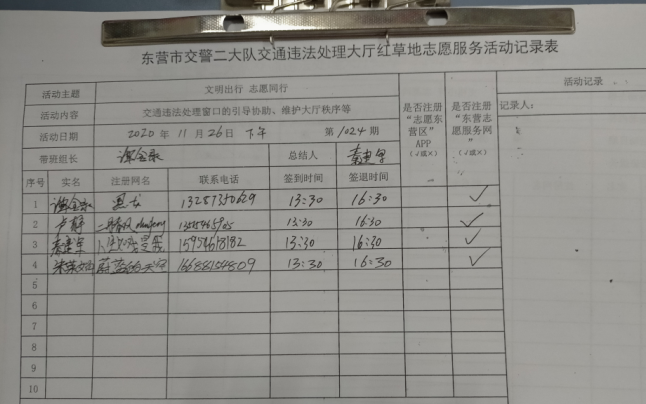 东营市交警二大队交通违法处理大厅红草地志愿服务活动记录表
活动主题 文明出行 志愿同行
活动内容 交通违法处理窗口的引导协助、维护大厅秩序等
活动日期 2020 年 11 月 26 日 下午 第 1024 期
是否注册“志愿东营区”APP（√或×）
是否注册“东营志愿服务网”（√或×）
活动记录
记录人：
带班组长 总结人
序号 实名 注册网名 联系电话 签到时间 签退时间
1 黑龙 13287350629 13:30 16:30 √
2 13:30 16:30 √
3 13:30 16:30 √
4 13:30 16:30 √
5
6
7
8
9
10